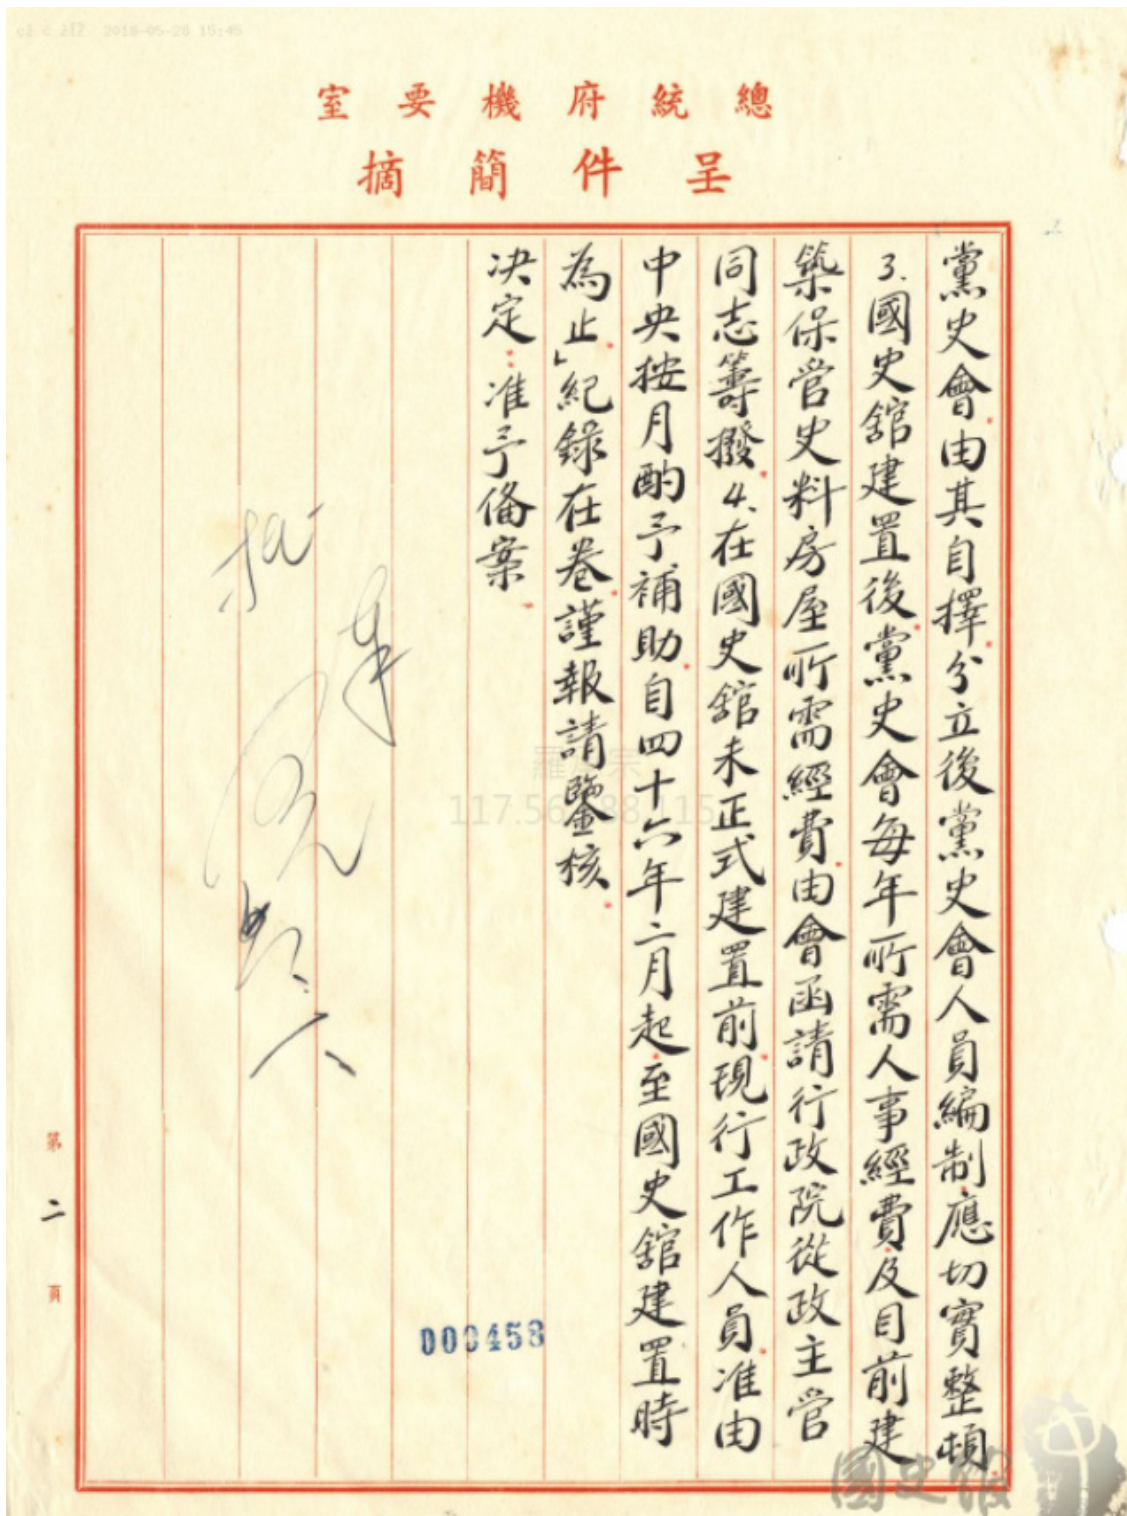 2018-05-28 15:45
總統府機要室
呈件簡摘
黨史會由其自擇分立後黨史會人員編制應切實整頓
3.國史舘建置後黨史會每年所需人事經費及目前建
築保管史料房屋所需經費由會函請行政院從政主管
同志籌撥4.在國史舘未正式建置前現行工作人員准由
中央按月酌予補助自四十六年二月起至國史舘建置時
為止」紀錄在卷謹報請鑒核
决定:准予備案
第二頁
000458
國史館